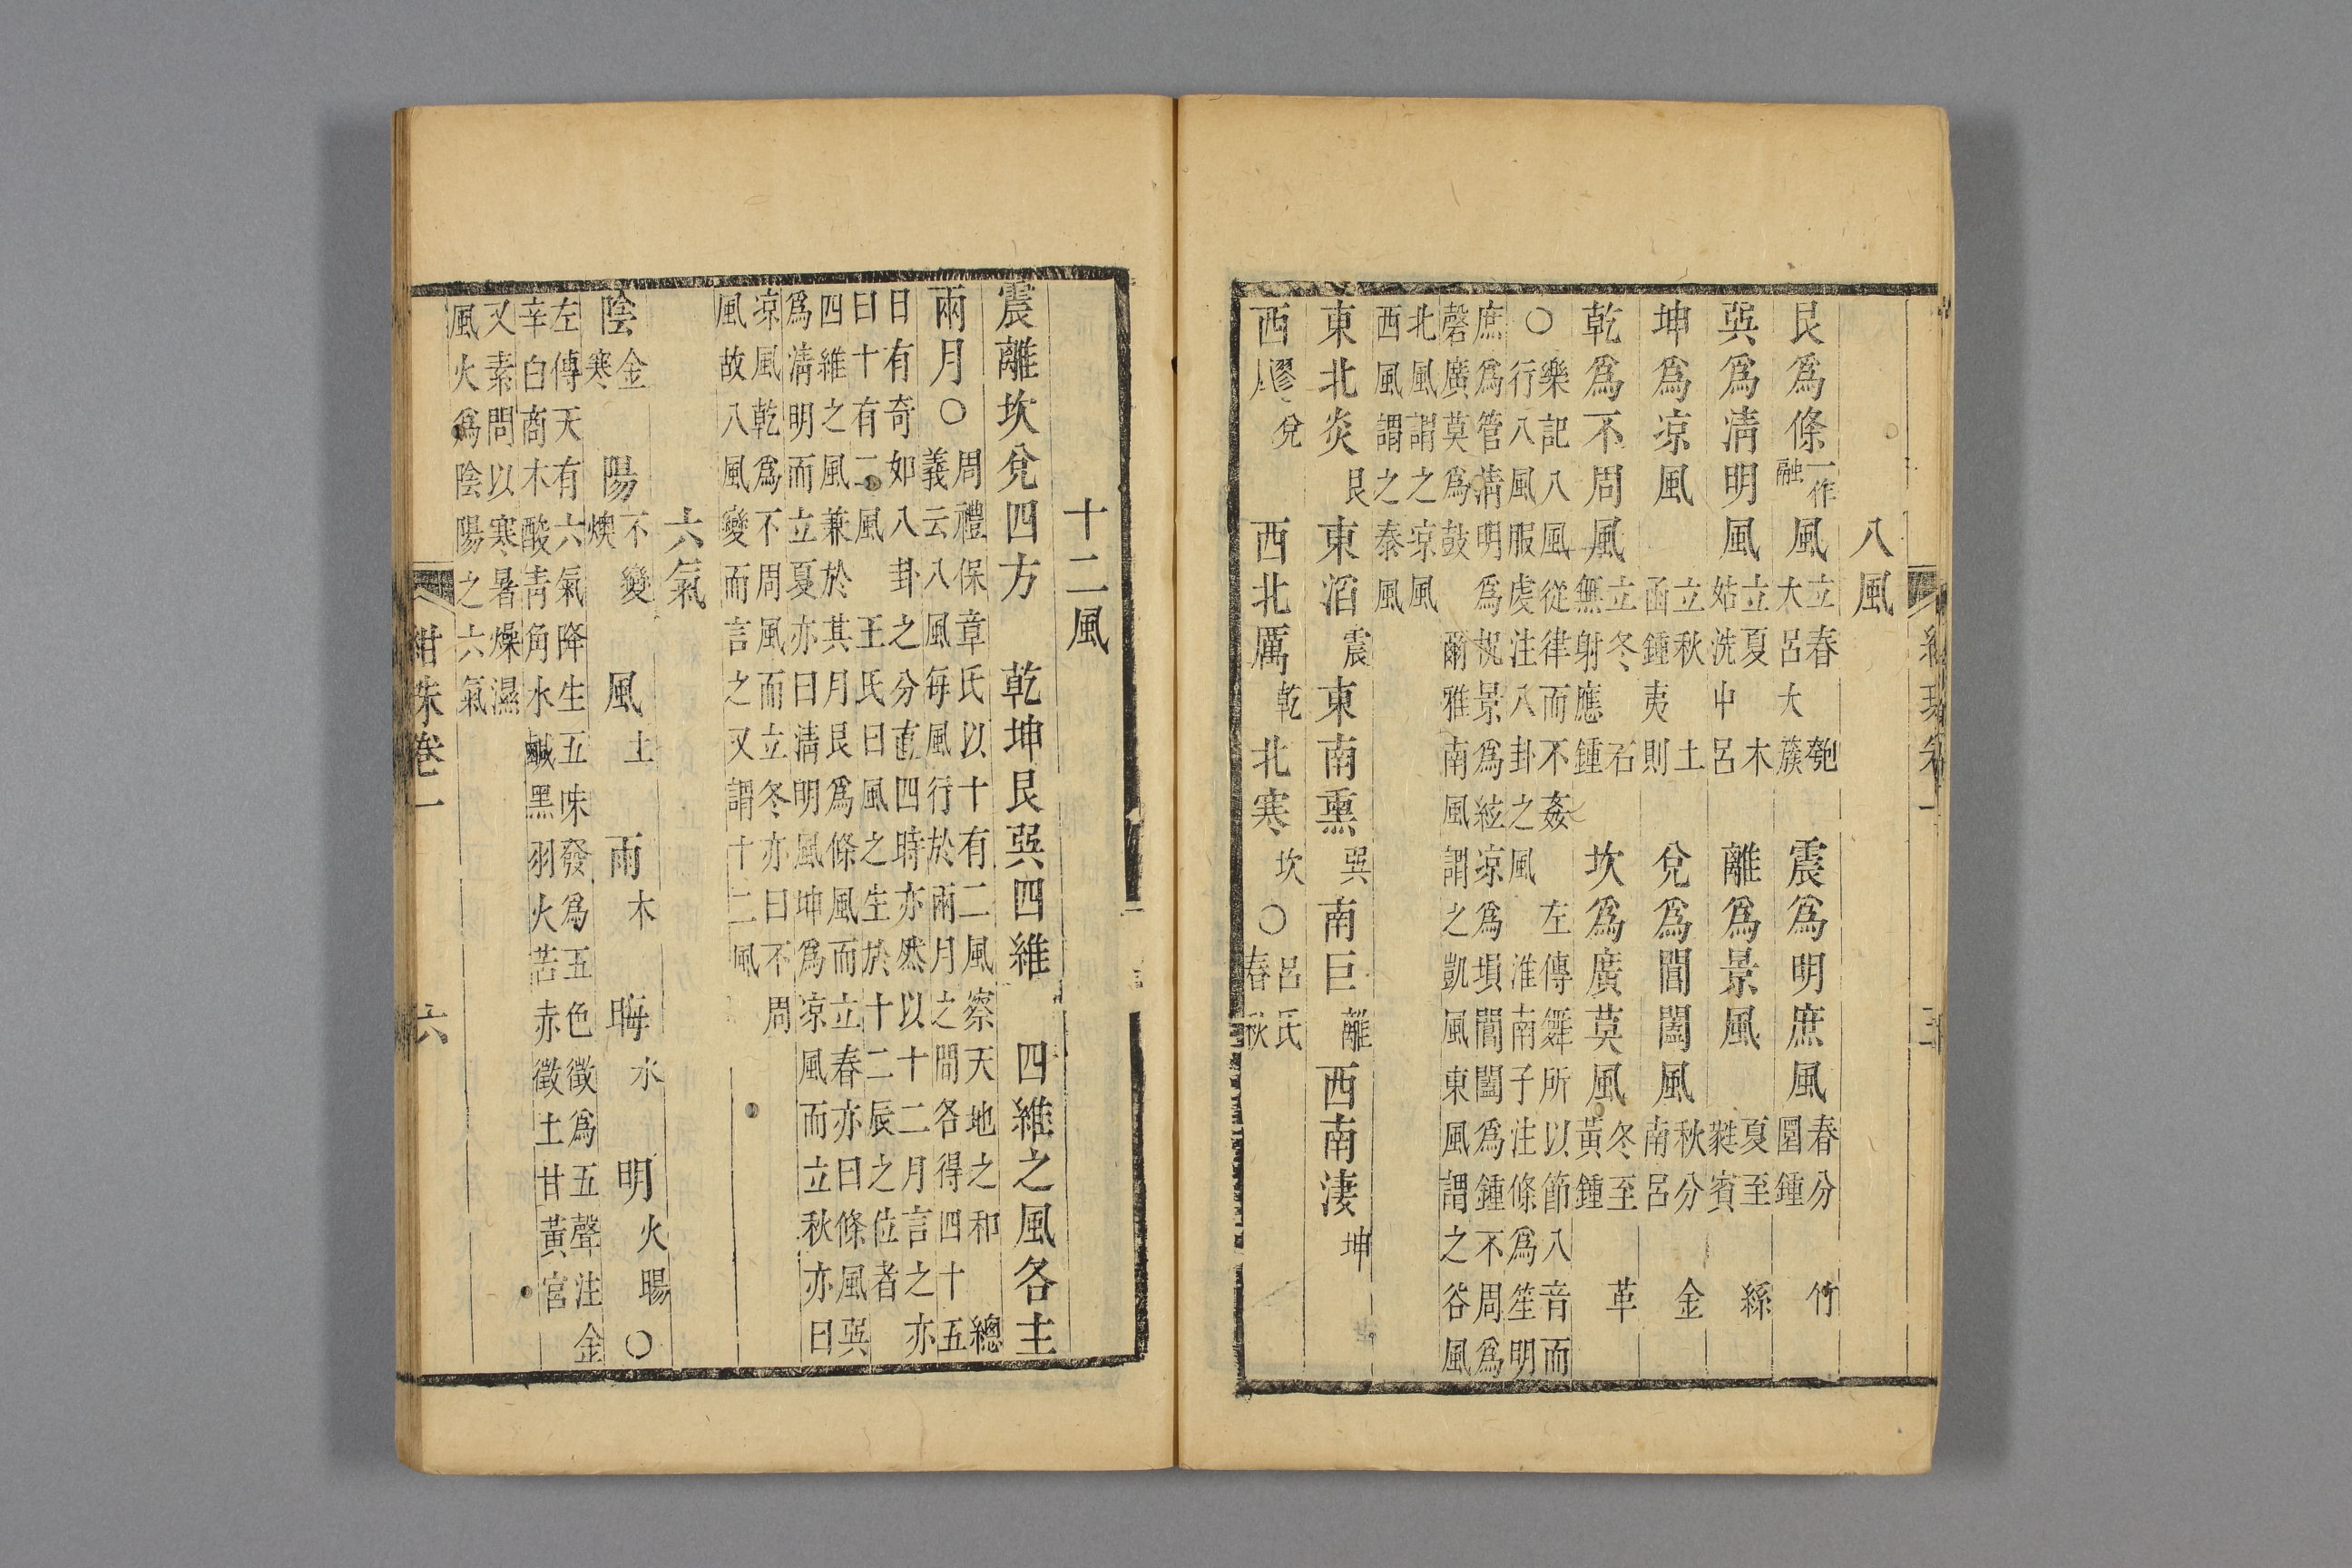 八風
艮爲條一作融風立春大呂大蔟匏 震爲明庶風春分圜鍾竹
巽爲清明風立夏姑洗中呂木 離爲景風夏至蕤賓絲
坤爲凉風立秋函鍾夷則土 兌爲閶闔風秋分南呂金
乾爲不周風立冬無射應鍾石 坎爲廣莫風冬至黃鍾革
○樂記八風從律而不姦 左傳舞所以節八音而
行八風服虔注八卦之風 淮南子注條爲笙明
庶爲管清明爲柷景爲絃凉爲塤閶闔爲鍾不周爲
磬廣莫爲鼓 爾雅南風謂之凱風東風謂之谷風
北風謂之凉風
西風謂之泰風
東北炎艮 東滔震 東南熏巽 南巨離 西南淒坤
西飂兌 西北厲乾 北寒坎 ○呂氏春秋
十二風
震離坎兌四方 乾坤艮巽四維 四維之風各主
兩月○周禮保章氏以十有二風察天地之和 總
義云八風每風行於兩月之間各得四十五
日有奇如八卦之分直四時亦然以十二月言之亦
曰十有二風 王氏曰風之生於十二辰之位者
四維之風兼於其月艮爲條風而立春亦曰條風巽
爲清明而立夏亦曰清明風坤爲凉風而立秋亦曰
凉風乾爲不周風而立冬亦曰不周
風故八風變而言之又謂十二風
六氣
陰金寒 陽不變燠 風土 雨木 晦水 明火暘○
左傳天有六氣降生五味發爲五色徵爲五聲注金
辛白商木酸靑角水鹹黑羽火苦赤徵土甘黃宮
又素問以寒暑燥濕
風火爲陰陽之六氣
紺珠卷一 六